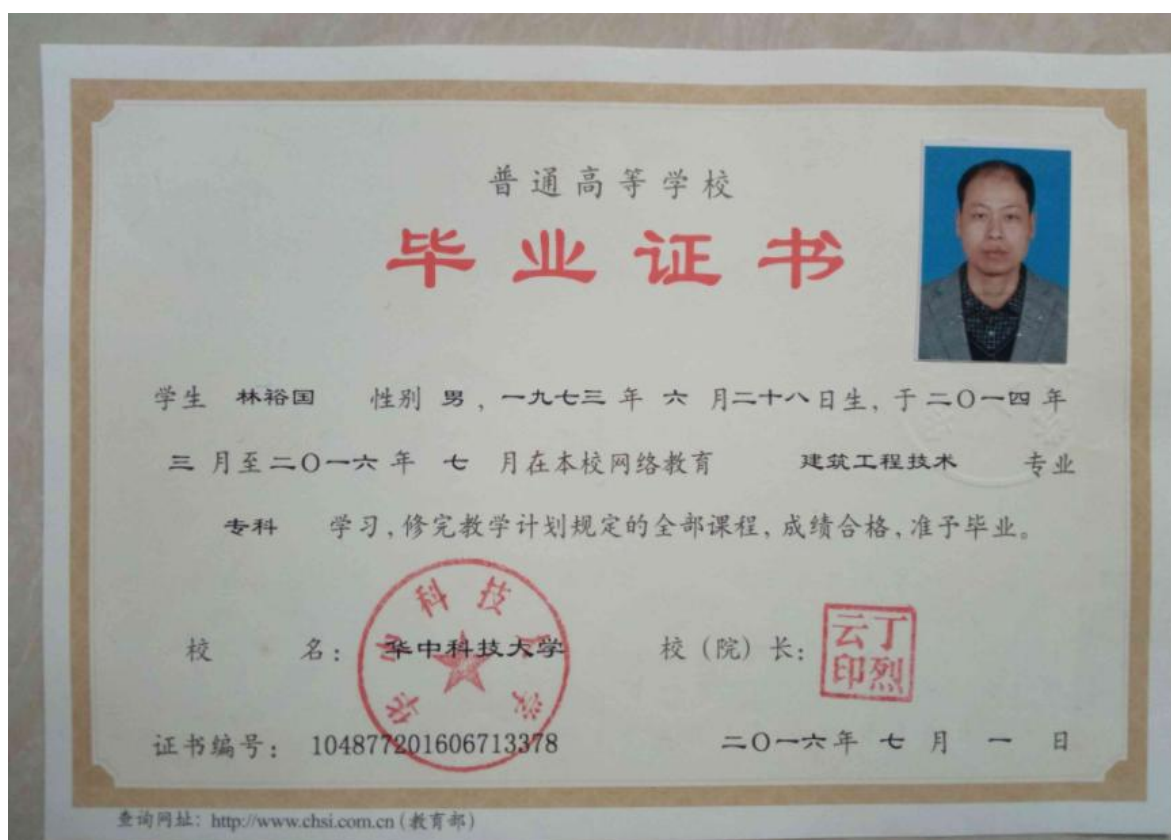 普通高等学校
毕业证书
学生 林裕国 性别 男，一九七三年 六 月二十八日生，于二〇一四年
三 月至二〇一六年 七 月在本校网络教育 建筑工程技术 专业
专科 学习，修完教学计划规定的全部课程，成绩合格，准予毕业。
华中科技大学
校 名：华中科技大学 校（院）长：丁烈云印
证书编号：104877201606713378 二〇一六年 七 月 一 日
查询网址：http://www.chsi.com.cn(教育部)